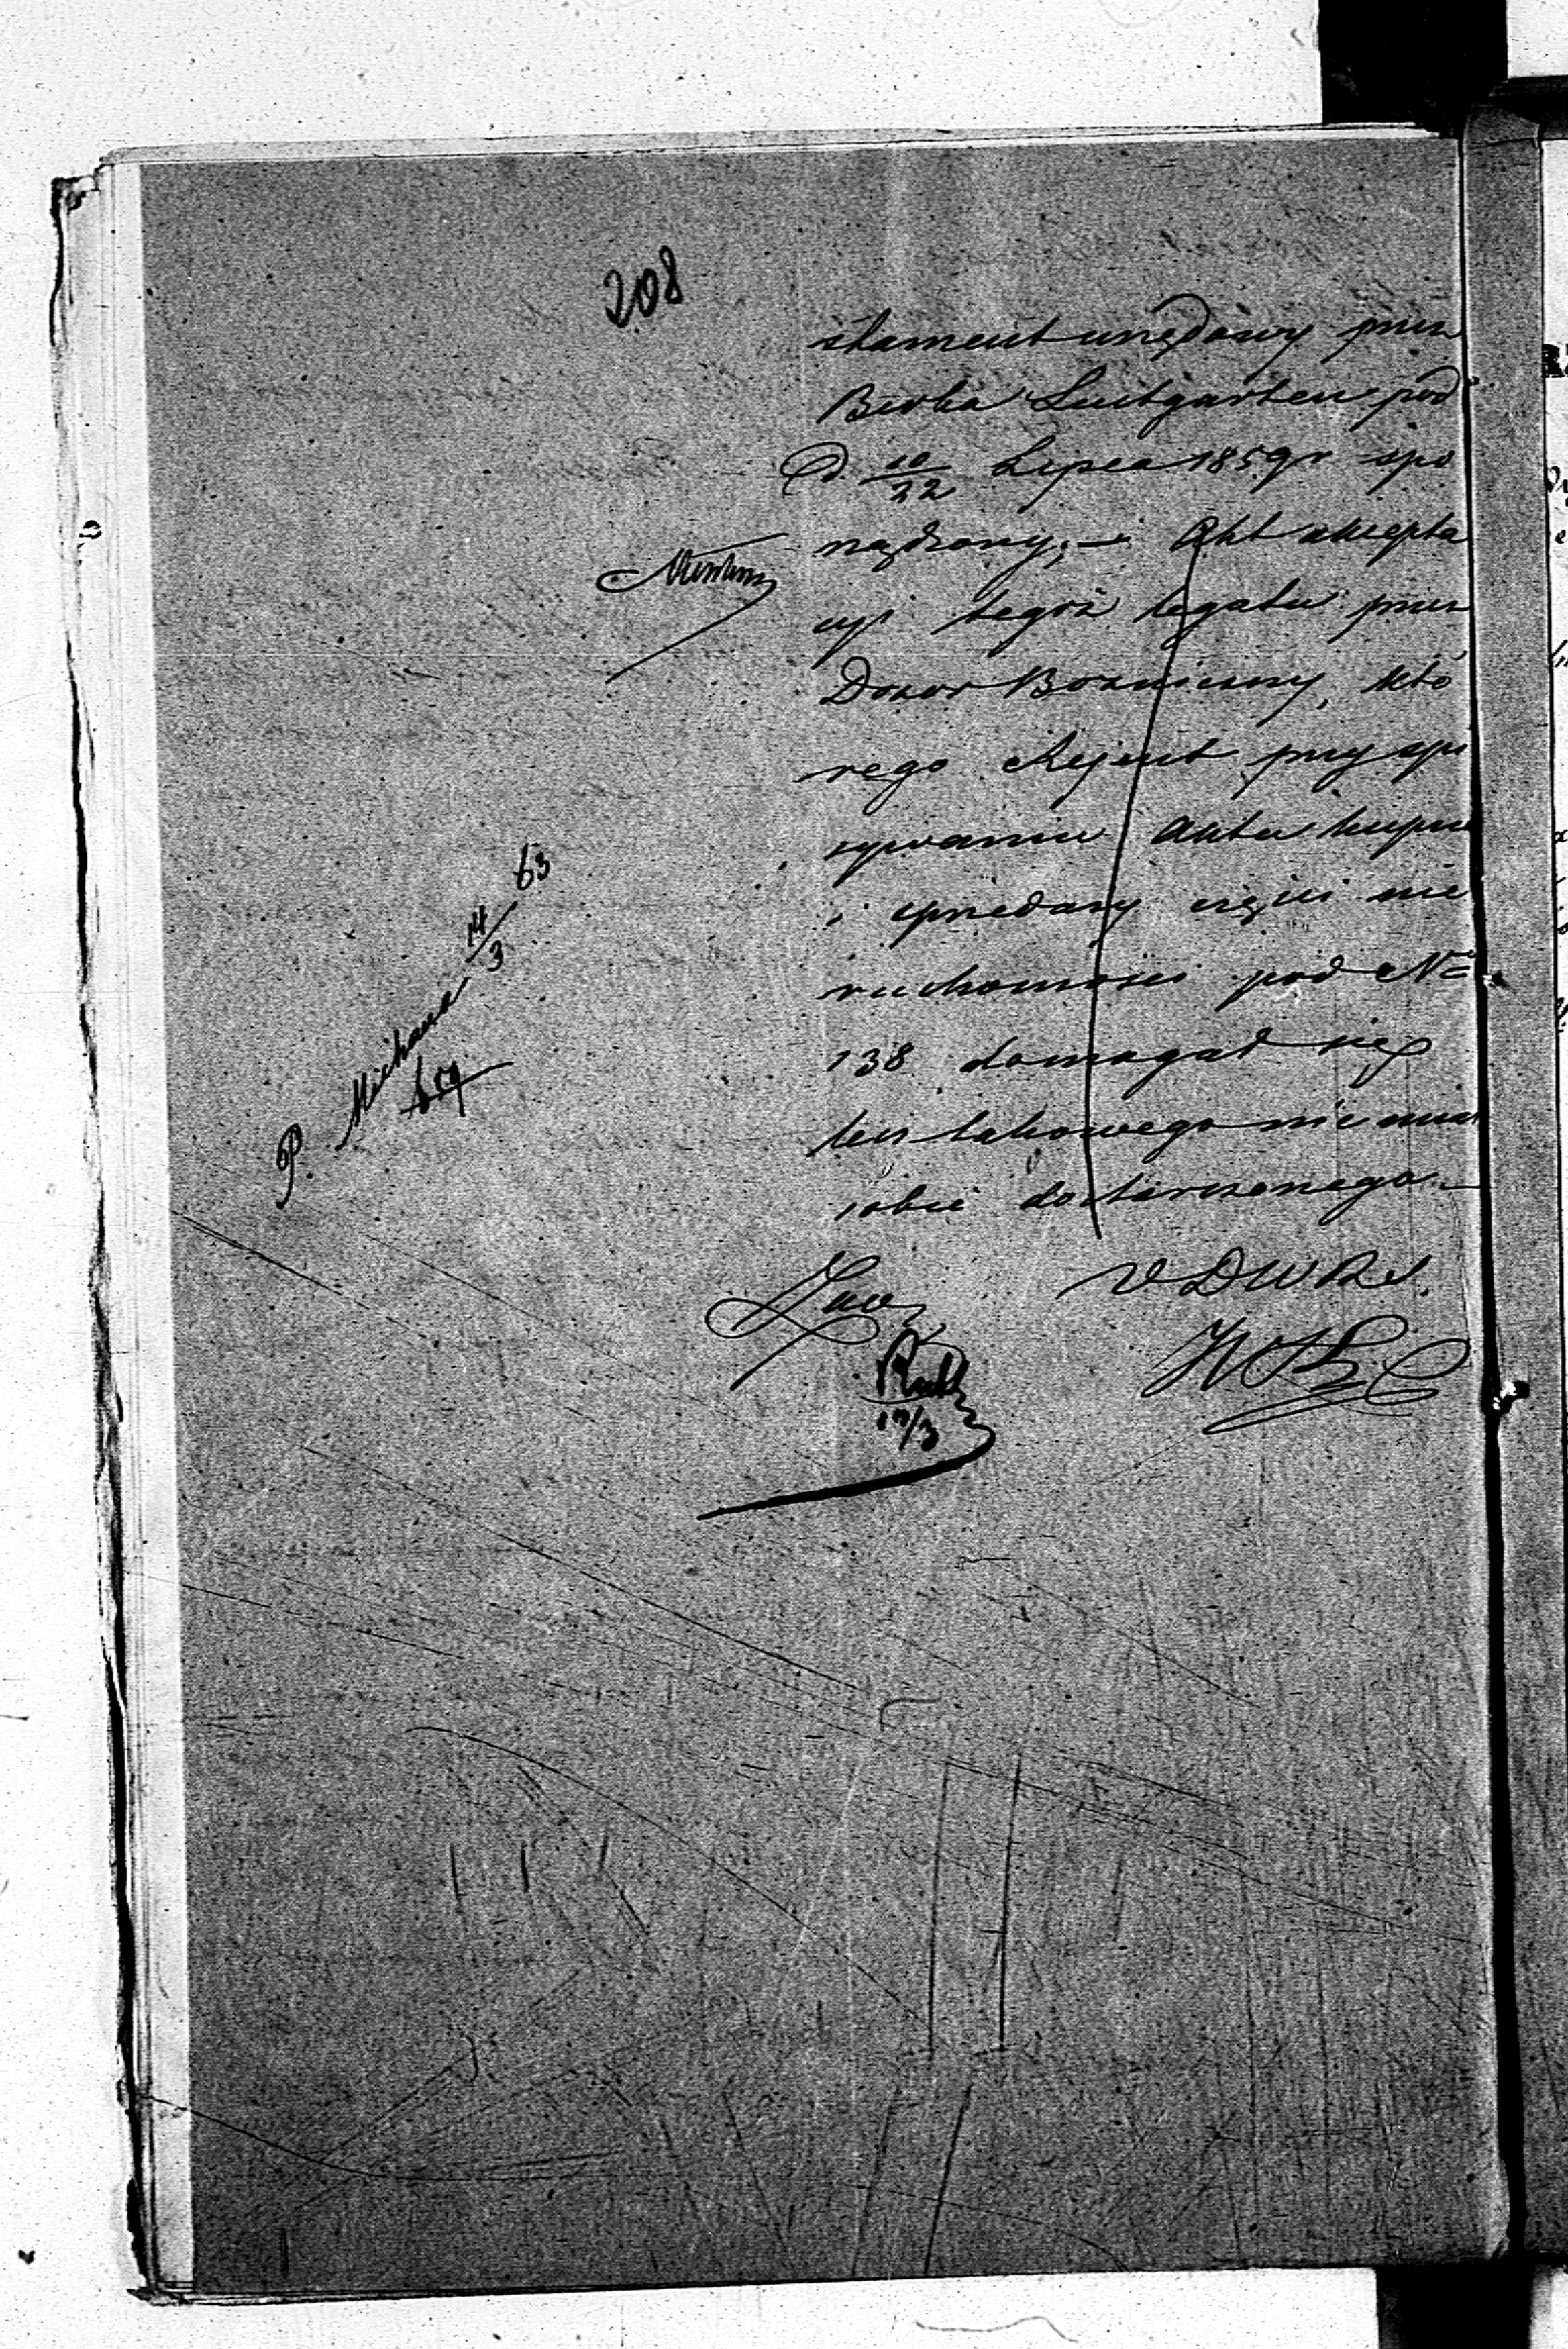 208
stament urzędowy przez
Berka Lustgarten pod
d. 10/22 Lipca 1859 r spo
rządzony; — Akt akcepta
cyi tegoż legatu przez
Dozor Bozniczny, któ
rego Rejent przy spi
sywaniu Aktu kupna
i sprzedaży części nie
ruchomości pod No
138 domagał się
lecz takowego nie miał
sobie dostarczonego.—
P. Michana 14/3 63
659
VDWRS.
17/3